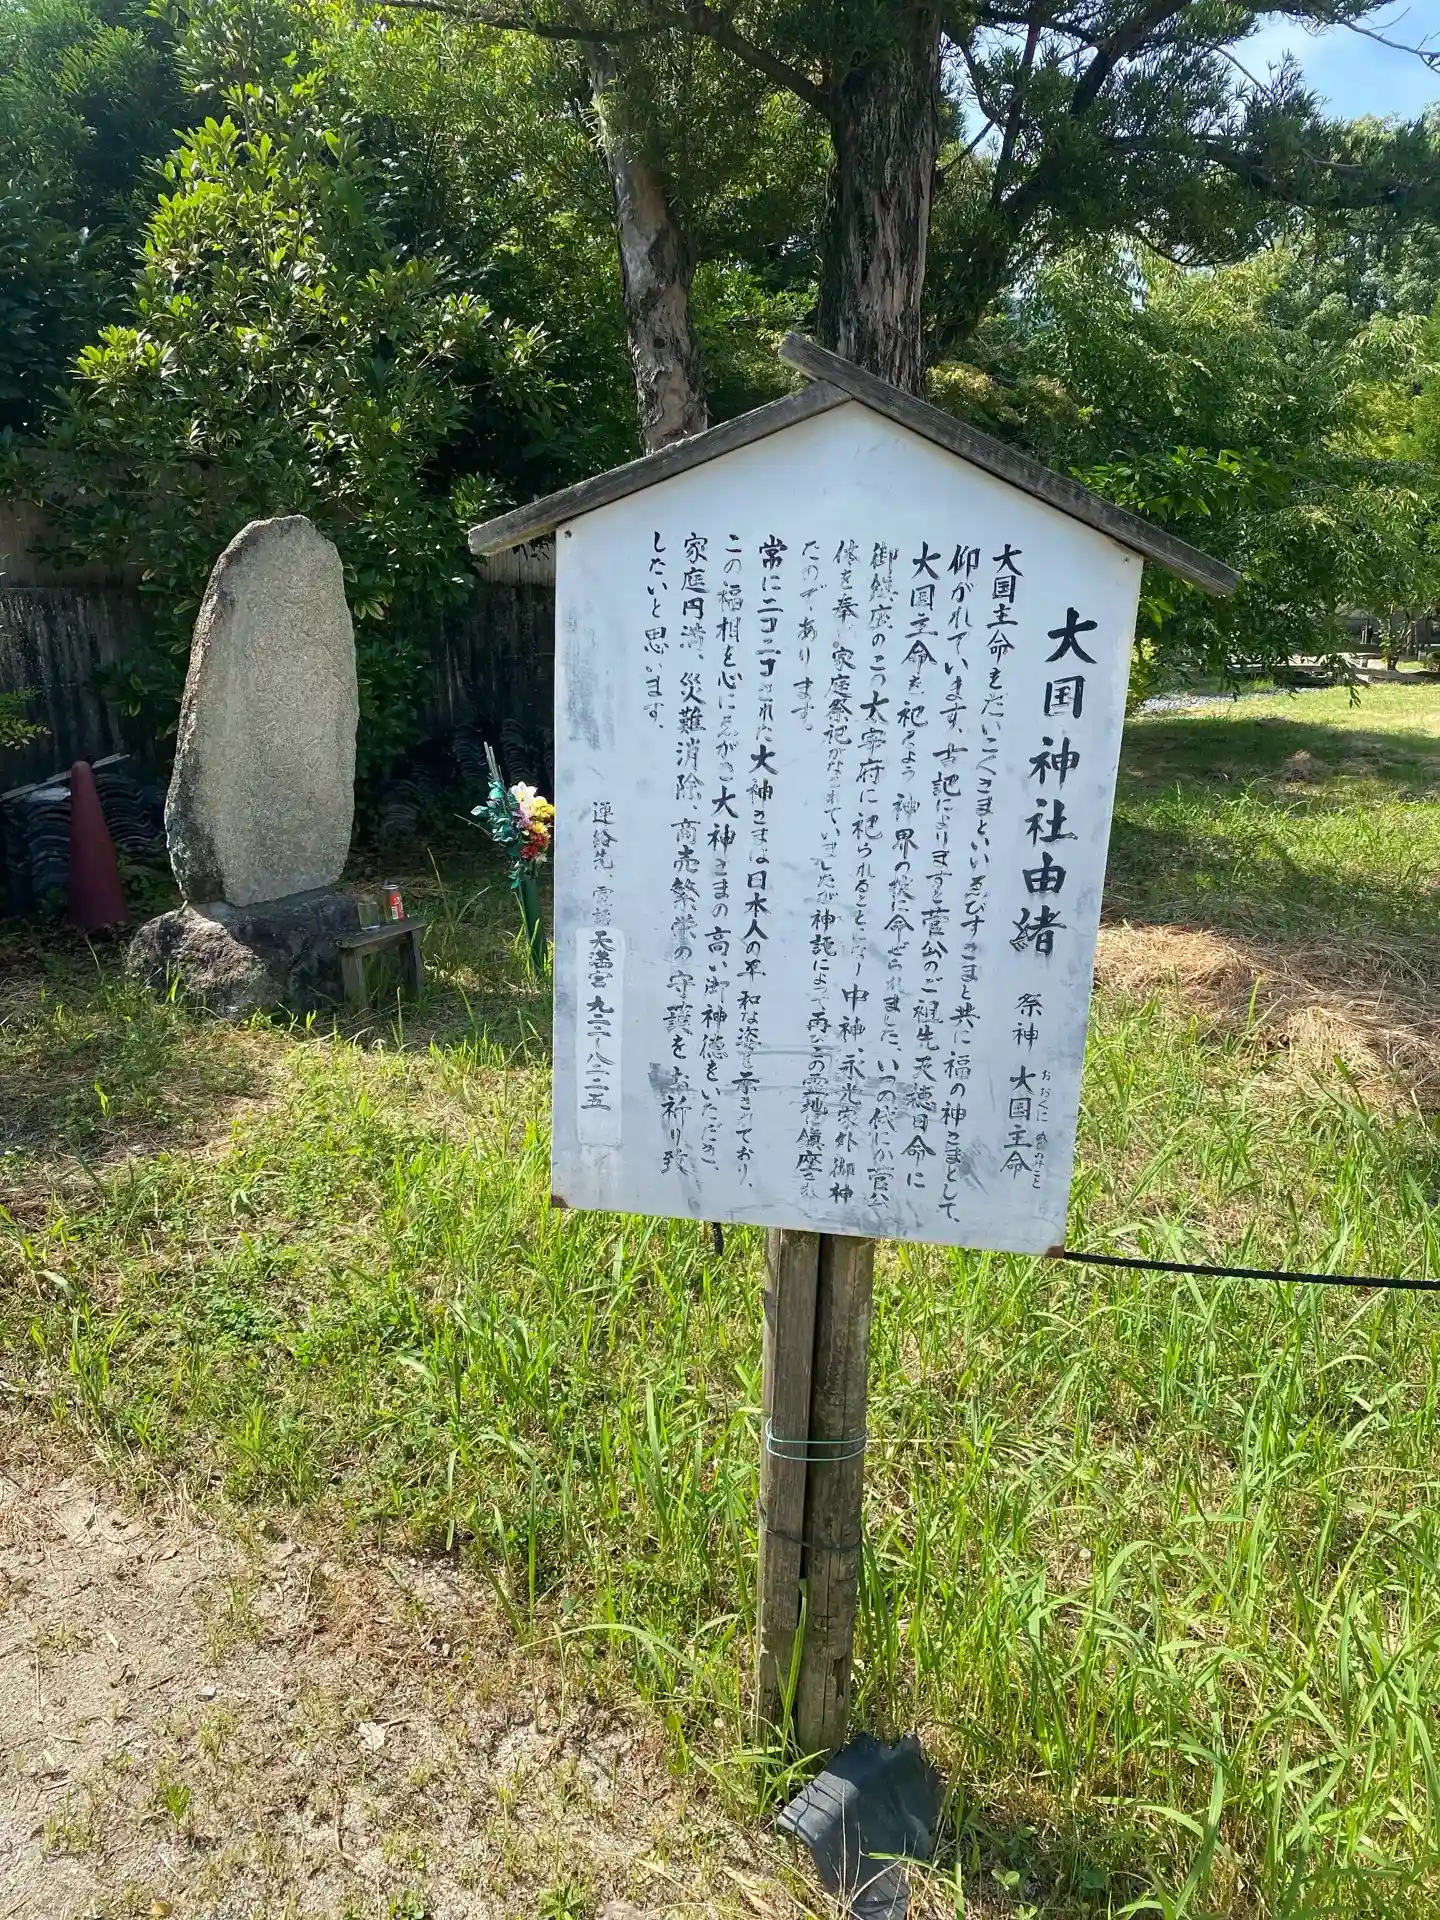 大国神社由緒
祭神 大国主命
おおくに ぬしのみこと
大国主命をだいこくさまといいゑびすさまと共に福の神さまとして、
仰がれています、古記によりますと菅公のご祖先天穂日命に
大国主命を祀るよう神界の掟に命ぜられました、いつの代にか菅公
御鎮座のこの太宰府に祀られることとなり中神、永光家外御神
体を奉 家庭祭祀がなされていましたが神託によって再びこの霊地に鎮座され
たのであります。
常にニコニコされた大神さまは日本人の平和な姿を示されており、
この福相を心にゑがき大神さまの高い御神徳をいただき、
家庭円満、災難消除、商売繁栄の守護をお祈り致
したいと思います。
連絡先 電話 天満宮 九二二ー八二二五